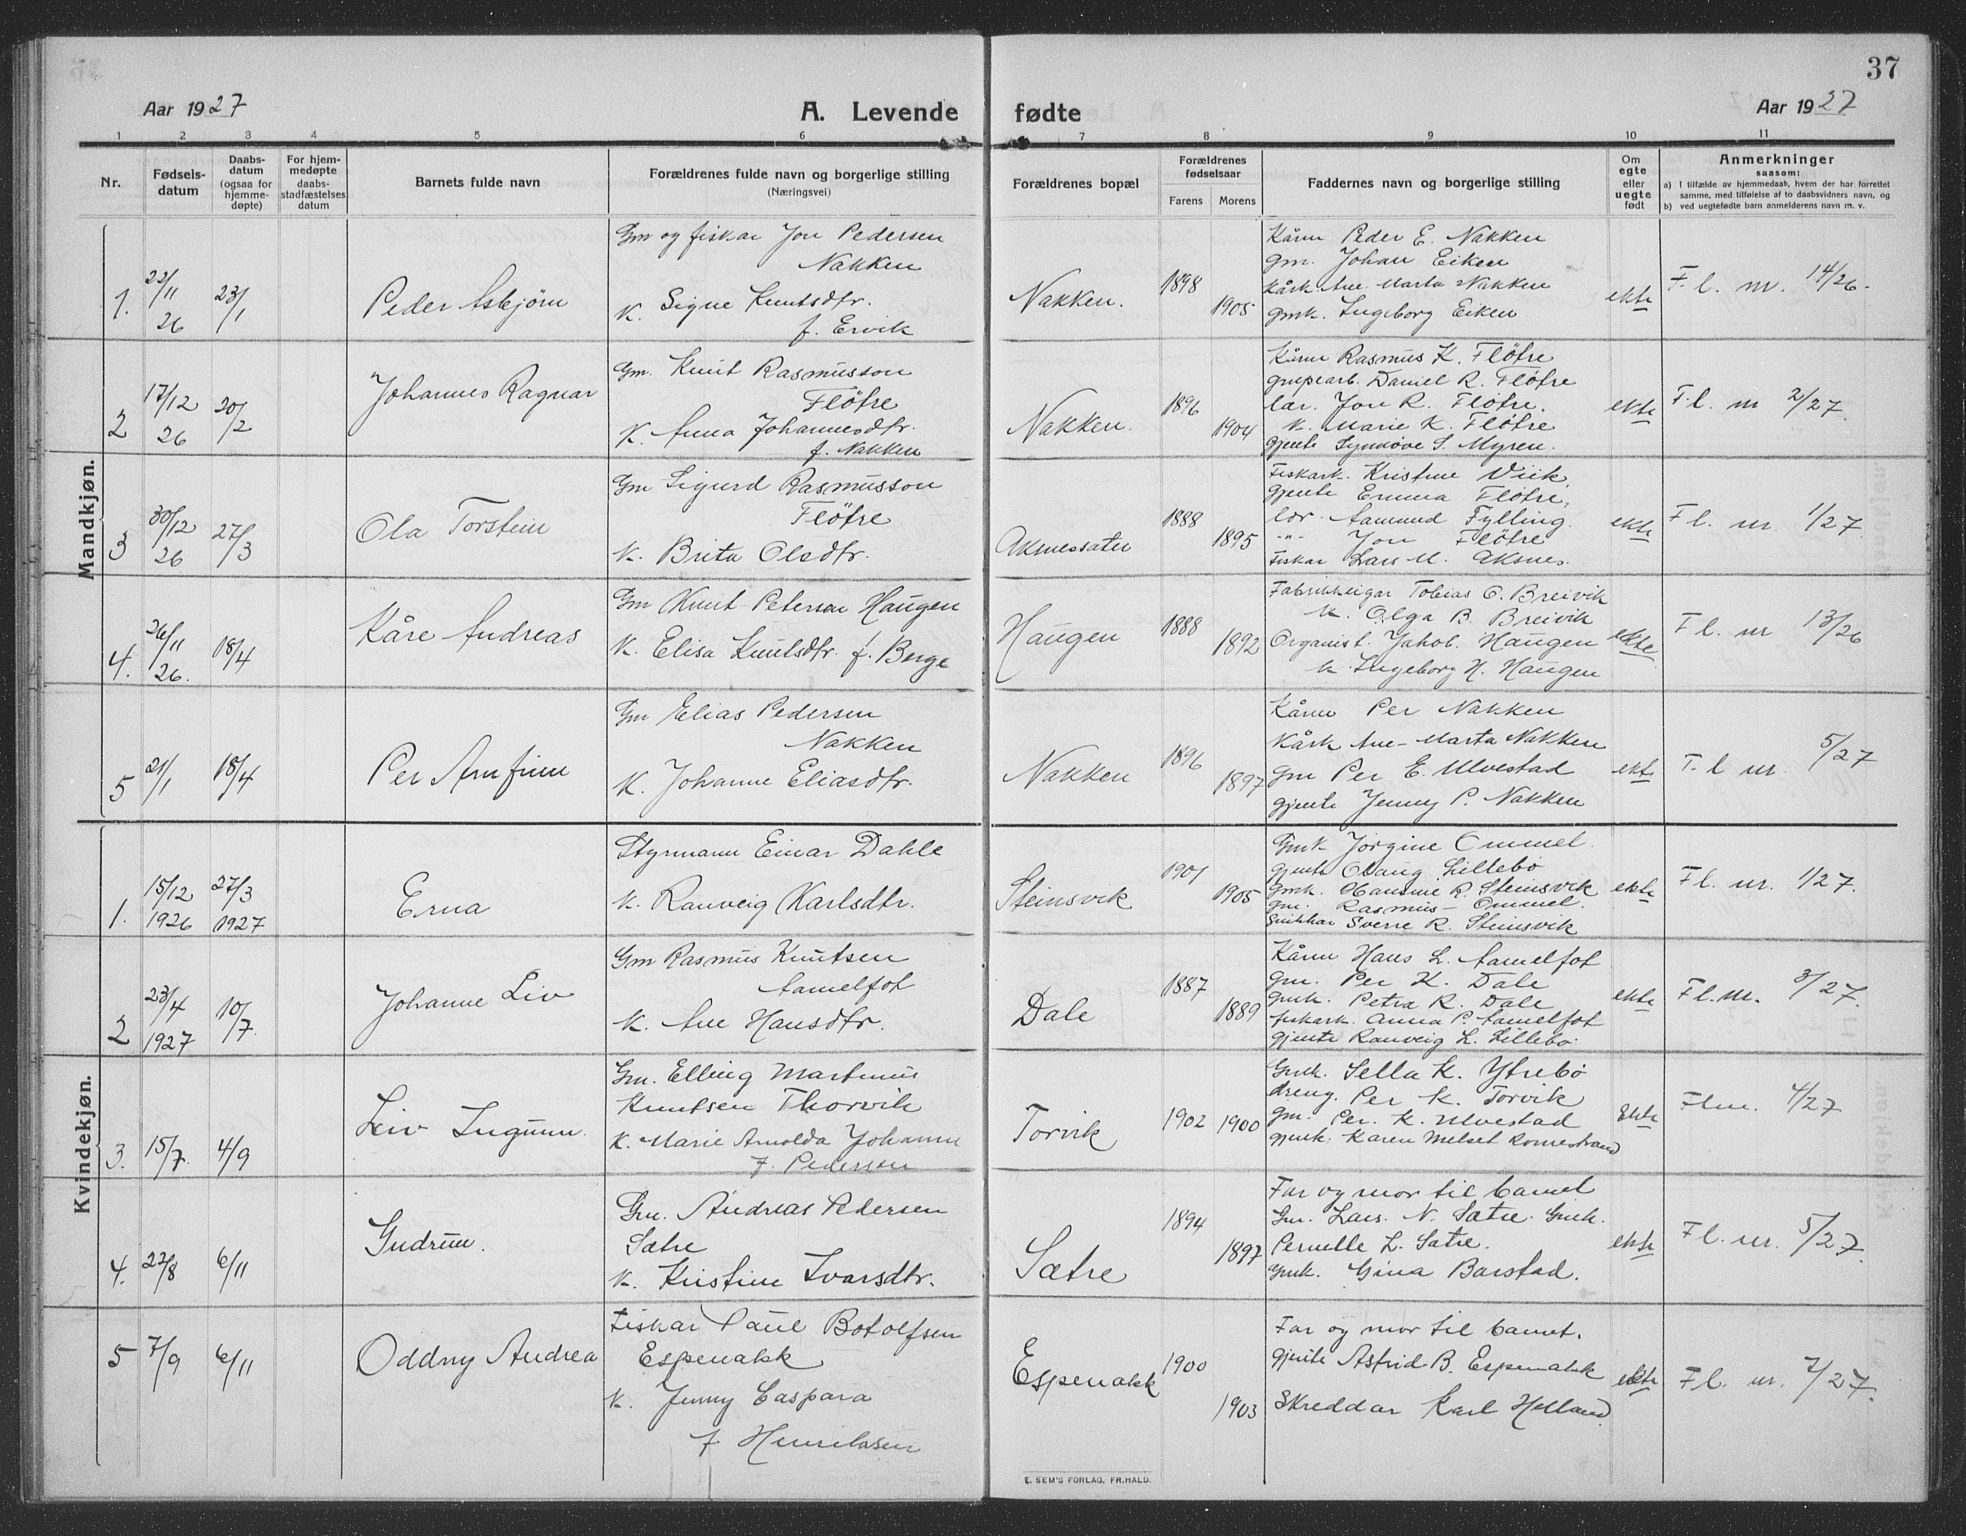 37
Aar 1927
A. Levende fødte
Aar 1927
1 2 3 4 5 6 7 8 9 10 11
Nr.
Fødsels-
datum
Daabs-
datum
(ogsaa for
hjemme-
døpte)
For hjem-
medøpte
daabs-
stadfæstelses
datum
Barnets fulde navn
Forældrenes fulde navn og borgerlige stilling
(Næringsvei)
Forældrenes bopæl
Forældrenes
fødselsaar
Farens Morens
Faddernes navn og borgerlige stilling
Om
egte
eller
uegte
født
Anmerkninger
saasom:
a) I tilfælde av hjemmedaab, hvem der har forrettet
samme, med tilføielse af to daabsvidners navn, og
b) ved uegtefødte barn anmelderens navn m. v.
Mandkjøn.
1.
22/11
26
23/1
Peder Asbjørn
Gm og fiskar Jon Pedersen
Nakken
K. Signe Knutsdtr.
f. Ervik
Nakken.
1898
1905
Kårm Peder E. Nakken
Gm. Johan Eiken
Kårk. Ane Marta Nakken
Gmk. Ingeborg Eiken
ekte
F. l. m. 14/26.
2
17/12
26
20/2
Johannes Ragnar
Gm. Knut Rasmusson
Fløtre
K. Anna Johannesdtr.
f. Nakken
Nakken.
1896
1904
Kårm Rasmus K. Fløtre
Daniel R. Fløtre
lær. Jon R. Fløtre.
K. Marie K. Fløtre
Gjente Synnøve S. Myren.
ekte
F. l. m 2/27.
3
30/12
26
27/3
Ola Torstein
Gm Sigurd Rasmusson
Fløtre
K. Brita Olsdtr.
Aknessæter
1888
1895
Fiskark. Kristine Viik,
Gjente Emma Fløtre,
lær. Aamund Fylling.
-"- Jon Fløtre
Fiskar Lars M. Aksnes.
ekte
F l. nr. 1/27.
4.
26/11
26.
18/4
Kåre Andreas
Gm Knut Peterson Haugen
K. Elisa Knutsdtr. f. Berge
Haugen
1888
1892
Fabrikkeigar Tobias O. Breivik
K. Olga B. Breivik
Organist. Jakob. Haugen
K. Ingeborg H. Haugen
ekte.
F l. nr 13/26
5
21/1
18/4
Per Arnfinn
Gm Elias Pedersen
Nakken
K. Johanne Eliasdtr.
Nakken
1896
1897
Kårm Per Nakken
Kårk Ane-Marta Nakken
Gm Per E. Ulvestad
Gjente Jenny P. Nakken
ekte
F. l nr. 5/27
Kvindekjøn.
1.
15/12
1926
27/3
1927
Erna
Styrmann Einar Dahle
K. Ranveig Karlsdtr.
Steinsvik
1901
1905
Gmk Jørgine Ommel.
Gjente Olaug Lillebø
Gmk. Hansine R. Steinsvik
Gm. Rasmus Ommel.
Snikkar Sverre R. Steinsvik
ekte
F l. nr. 1/27.
2
23/4
1927
10/7.
Johanne Liv
Gm Rasmus Knutsen
Aamelfot
K. Ane Hansdtr.
Dale
1887
1889
Kårm Hans L. Aamelfot
Gm. Per K. Dale
Gmk. Petra R. Dale
fiskark. Anna P. Aamelfot
Gjente Ranveig L. Lillebø.
ekte
F l. m. 3/27.
3.
15/7.
4/9
Liv Ingunn.
Gm. Elling Martinus
Knutsen Thorvik
K. Marie Arnolda Johanna
f. Pedersen
Torvik
1902 1900
Gmk. Sella K. Ytrebø
dreng. Per K. Torvik
Gm. Per. K. Ulvestad
Karen Melset
Ekte
Flm. 4/27
4.
27/8
6/11
Gudrun.
Gm. Andreas Pedersen
Sætre
K. Kristine Ivarsdtr.
Sætre
1894
1897
Far og mor til barnet
Gm. Lars. N. Sætre. Gmk.
Pernelle L. Sætre.
Gmk. Gina Barstad.
ekte
F l. nr. 5/27.
5
7/9
6/11
Oddny Andrea
Fiskar Paul Botolfsen
Espenakk
K. Jenny Caspara
f Henriksen
Espenakk
1900
1903
Far og mor til barnet.
Gjente Astrid B. Espenakk
Skreddar Karl Helland.
ekte
F l. nr. 7/27.
E. SEM'S FORLAG, FR.HALD.